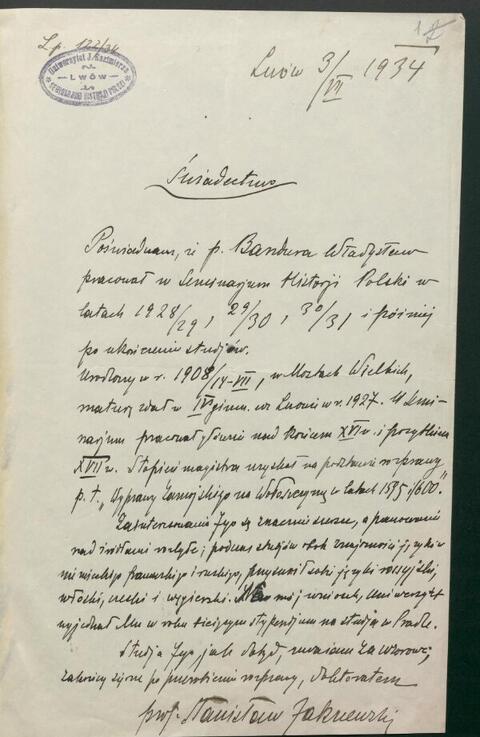 L.p. 122/34
Uniwersytet J. Kazimierza
LWÓW
SEMINARJUM HISTORJI POLSKI
Lwów 3/VII 1934
Świadectwo
Poświadczam, że p. Bandura Władysław
pracował w Seminarjum Historji Polski w
latach 1928/29, 29/30, 30/31 i później
po ukończeniu studjów.
Urodzony w r. 1908/14-VIII, w Mostach Wielkich,
maturę zdał w IV gimn. we Lwowie w r. 1927. W Semi-
narjum pracował głównie nad końcem XVI w. i początkiem
XVII w. Stopień magistra uzyskał na podstawie rozprawy
p. t. „Wyprawy Zamojskiego na Wołoszczyznę w latach 1595 i 1600."
Zainteresowania Jego są znacznie szersze, a panowanie
nad źródłami rozległe; podczas studjów obok znajomości języków
niemieckiego francuskiego i ruskiego, przyswoił sobie języki rosyjski,
włoski, czeski i węgierski. Na mój wniosek, Uniwersytet
wyjednał Mu w roku bieżącym stypendjum na studja w Pradze.
Studja Jego jak dotąd, uważam za wzorowe;
zakończy życzę po przedłożeniu rozprawy, doktoratem
prof. Stanisław Zakrzewski